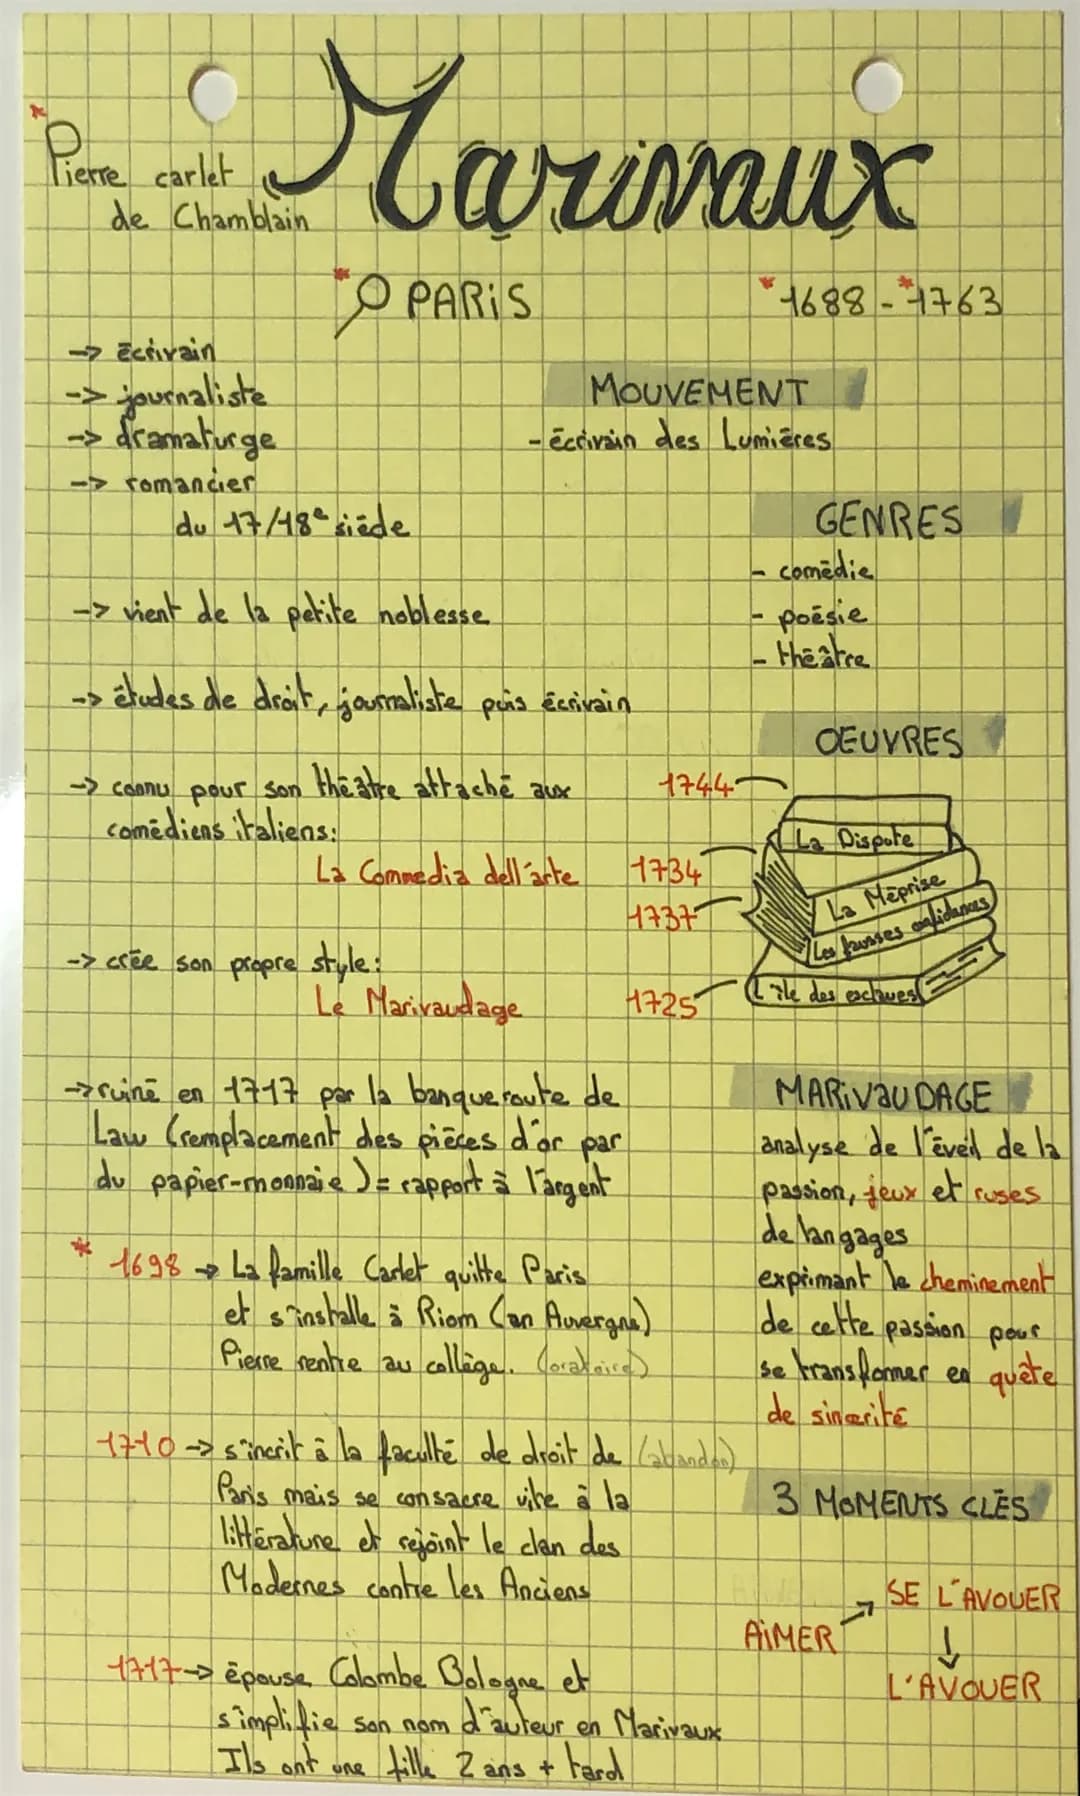 Marivaux
Pierre carlet
de Chamblain
PARiS
1688 - 1763
-> écrivain
-> journaliste
-> dramaturge
-> romancier
du 17/18e siècle
MOUVEMENT
- écrivain des Lumières
GENRES
- comédie
- poésie
- théâtre
-> vient de la petite noblesse
-> études de droit, journaliste puis écrivain
-> connu pour son théâtre attaché aux
comédiens italiens:
La Commedia dell'arte
-> crée son propre style:
Le Marivaudage
OEUVRES
1744
La Dispute
1734
La Méprise
1737
Les fausses confidances
1725
L'île des esclaves
-> ruiné en 1717 par la banqueroute de
Law (remplacement des pièces d'or par
du papier-monnaie) = rapport à l'argent
* 1698 -> La famille Carlet quitte Paris
et s'installe à Riom (en Auvergne)
Pierre rentre au collège. (oratoire)
1710 -> s'incrit à la faculté de droit de (abandon)
Paris mais se consacre vite à la
littérature et rejoint le clan des
Modernes contre les Anciens
1717 -> épouse Colombe Bologne et
s'implifie son nom d'auteur en Marivaux
Ils ont une fille 2 ans + tard
MARiVAUDAGE
analyse de l'éveil de la
passion, jeux et ruses
de langages
exprimant le cheminement
de cette passion pour
se transformer en quête
de sincérité
3 MOMENTS CLÉS
AiMER
SE L'AVOUER
L'AVOUER